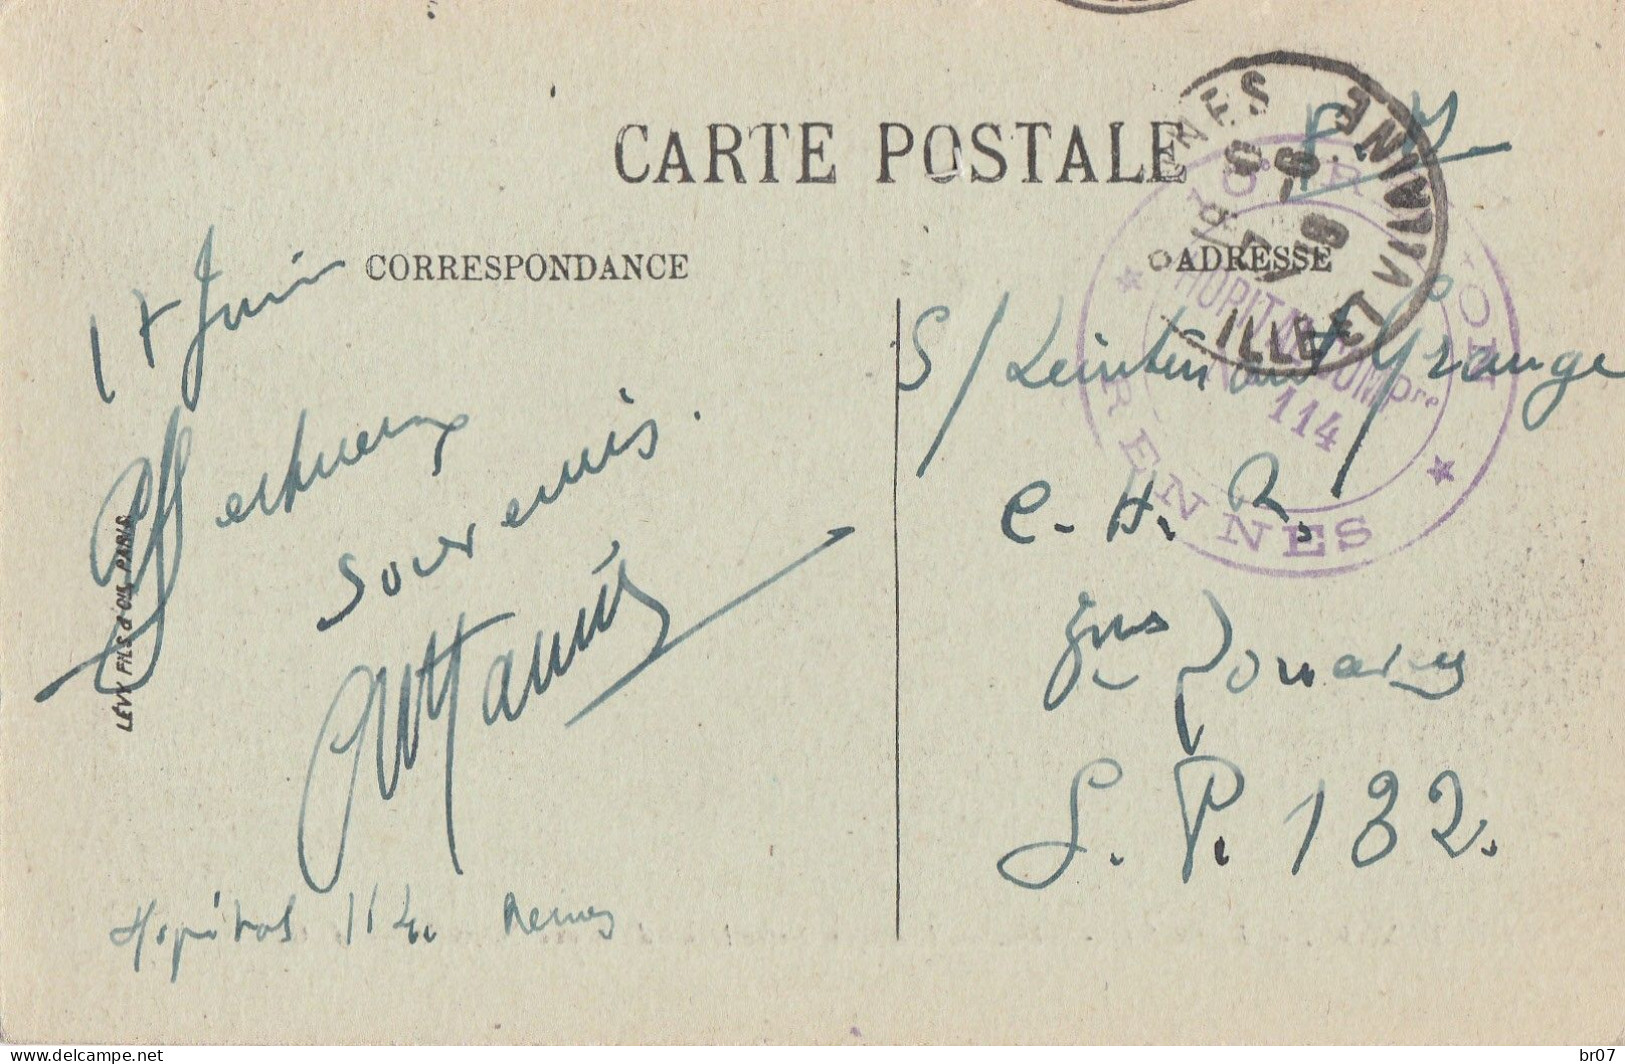 CARTE POSTALE
F. M.
CORRESPONDANCE
ADRESSE
17 Juin
Affectueux
souvenirs.
Hopital 114. Rennes
LEVY FILS & Cie, PARIS
S/Lieutenant Grange
C. H. R.
Gus Zouaves
S. P. 132.
RENNES
ILLE ET VILAINE
HOPITAL COMPre
114
RENNES
delcampe.net
br07